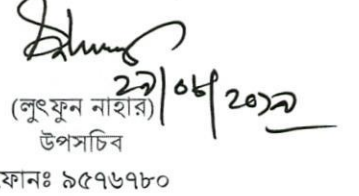 ২৯/০৮/২০১৯
(লুৎফুন নাহার)
উপসচিব
ফোনঃ ৯৫৭৬৭৮০